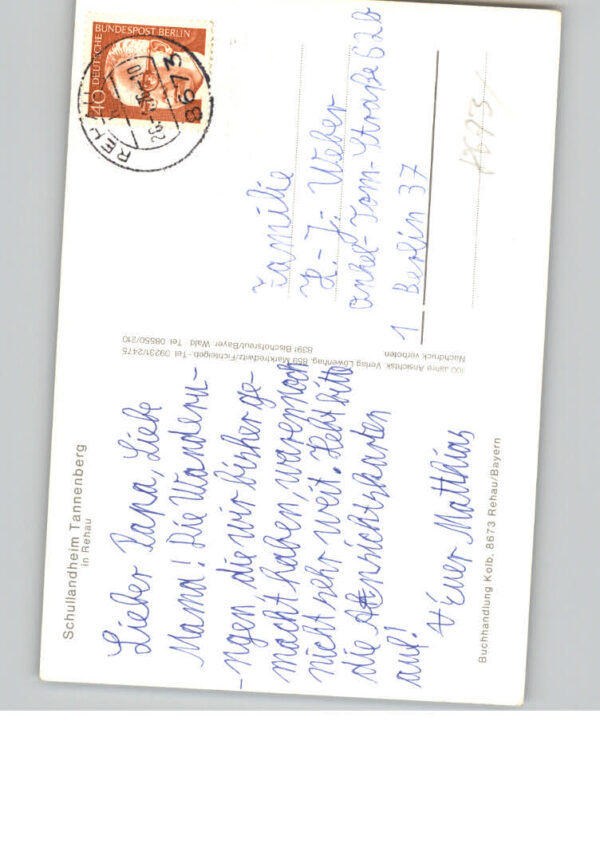 Schullandheim Tannenberg
in Rehau
Lieber Papa, Liebe
Mama! Die Wanderu-
-ngen die wir bisher ge-
macht haben, waren noch
nicht sehr weit. Hebt bitte
die Ansichtskarten
auf!
Euer Matthias
Buchhandlung Kolb, 8673 Rehau/Bayern
100 Jahre Ansichtsk. Verlag Löwenhag, 859 Marktredwitz/Fichtelgeb · Tel. 09231/2475
8391 Bischofsreut/Bayer. Wald · Tel. 08550/210
Nachdruck verboten
DEUTSCHE BUNDESPOST BERLIN
40
8673
REHAU
Familie
H.-J. Weber
Onkel-Tom-Straße 62b
1 Berlin 37